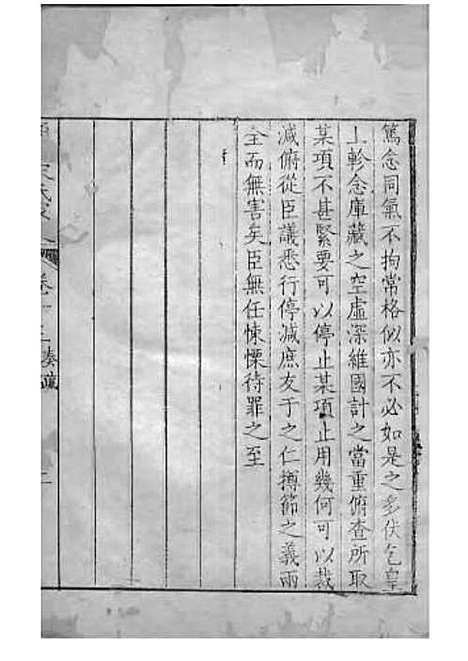 篤念同氣不拘常格似亦不必如是之多伏乞皇
上軫念庫藏之空虛深維國計之當重俯查所取
某項不甚緊要可以停止某項止用幾何可以裁
減俯從臣議悉行停減庶友于之仁撙節之義兩
全而無害矣臣無任悚慄待罪之至
卷十三 奏疏